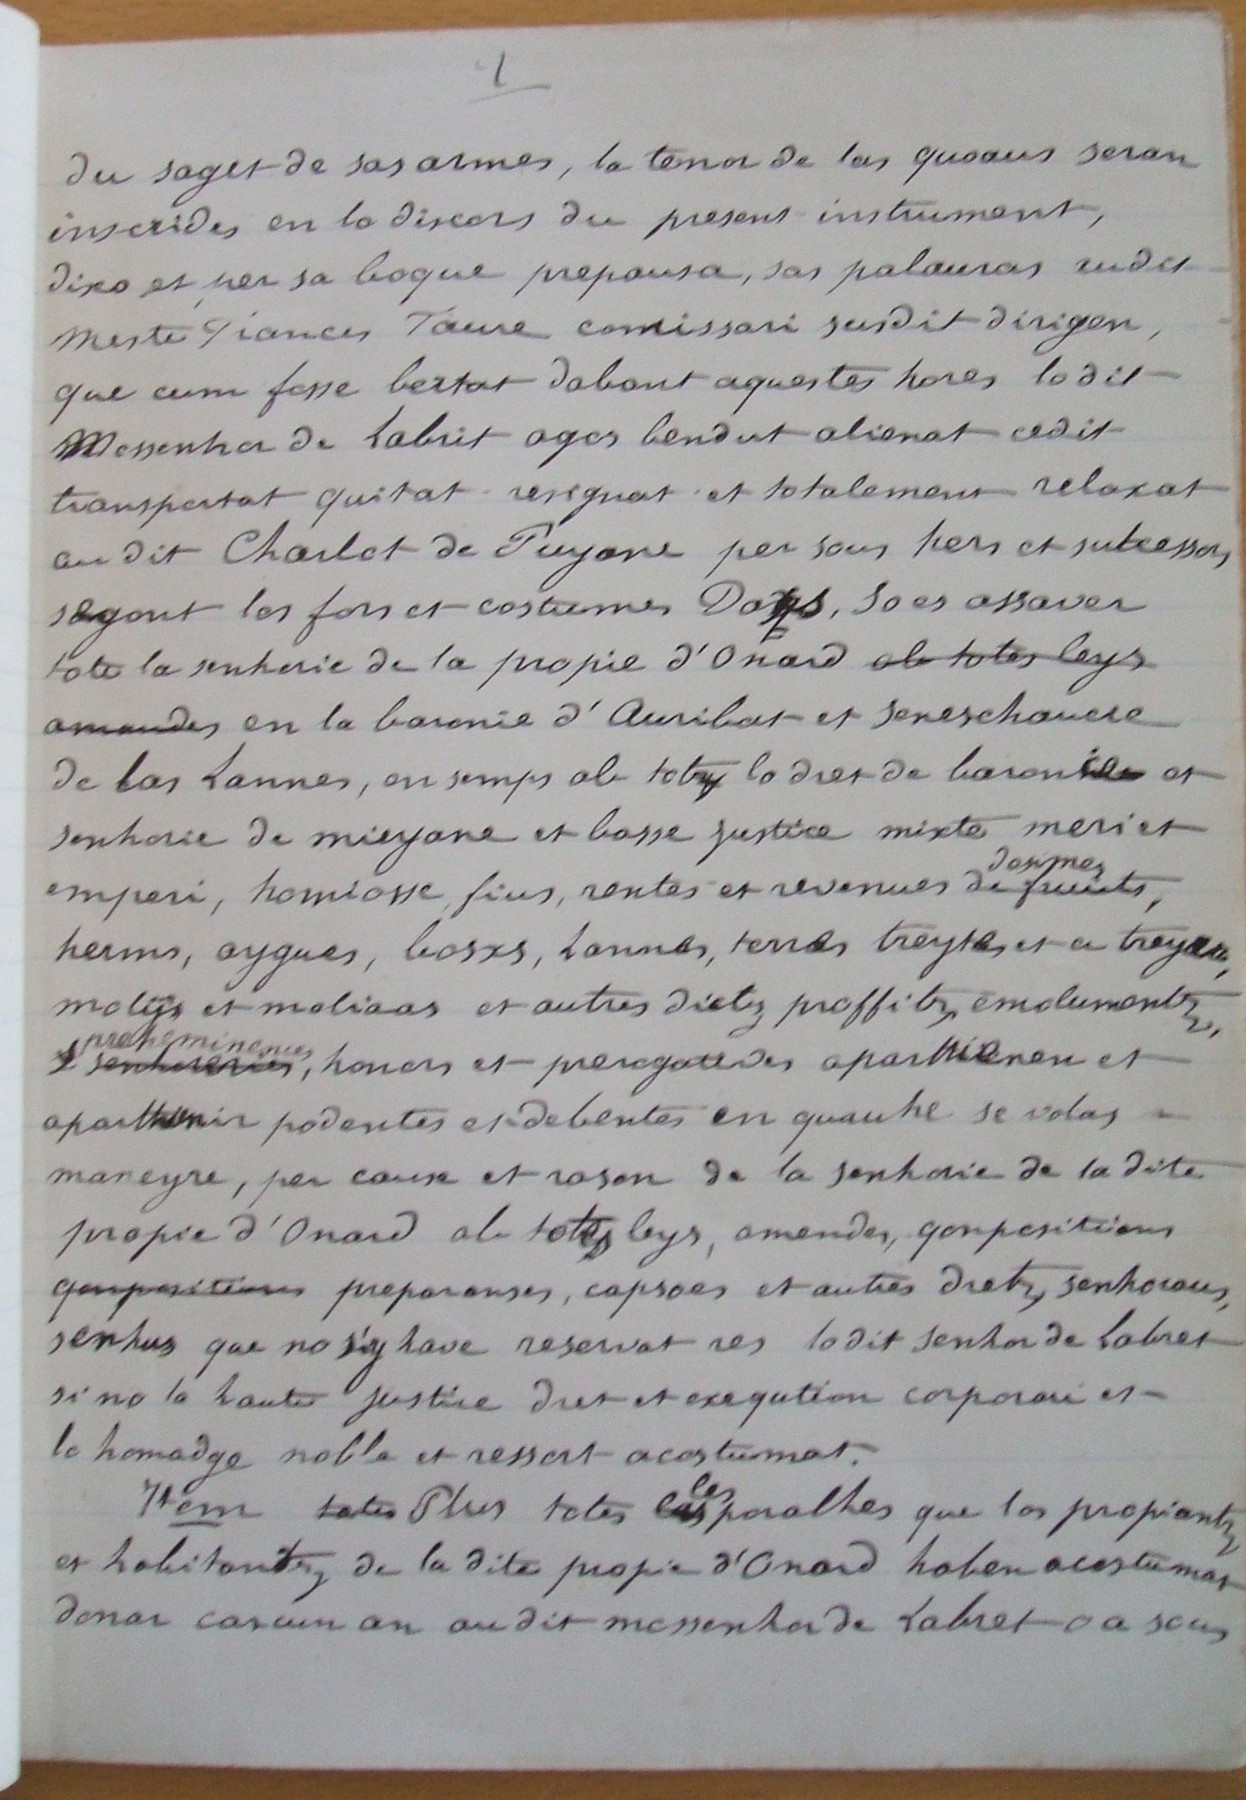 1
du saget de sas armes, la tenor de las quoaus seran
inscrides en lo discors du present instrument,
dixo et per sa boque prepausa, sas palauras audit
Meste Frances Faure comissari susdit dirigen,
que cum fosse bertat dabant aquestes hores lodit
Messenhor de Labrit ages bendut alienat cedit
transportat quitat resignat et totalement relaxat
au dit Charlot de Puyane per sous hers et subcessors
segont los fors et costumes Daxs, So es assaver
tote la senhorie de la propie d'Onard ab totes leys
amandes en la baronie d'Auribat et seneschaucie
de las Lannes, en semps ab totz lo dret de baronie et
senhorie de mieyane et basse justice mixte meri et
emperi, homiasse, fius, rentes et revenues desmes de fruuts,
herms, aygues, bosxs, Lannes, terres treytes et a treyer,
molijs et moliaas et autres dietz proffitz, emolumentz,
preheminences senhoreries, honors et prerogatives aparthienen et
aparthenir podentes et debentes en quauke se volas
maneyre, per cause et rason de la senhorie de la dite
propie d'Onard ab totes leys, amendes, gonpositiions
gonpositions preparanses, capsoes et autres dretz senhoraus,
senhus que no s'y have reservat res lodit senhor de Labret
si no la haute justice dret et exeqution corporau et
lo homadge noble et ressort acostumat.
Item totes Plus totes las les paralhes que los propiantz
et habitantz de la dite propie d'Onard haben acostumat
donar cascun an audit messenhor de Labret o a sous